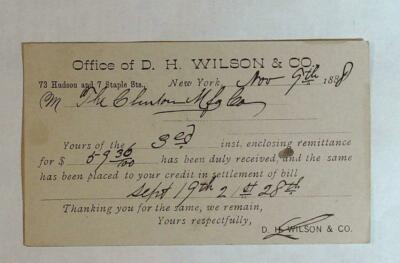 Office of D. H. WILSON & CO.
73 Hudson and 7 Staple Sts., New York, Nov 9th 1888
M The Clinton Mfg Co
Yours of the 3ed inst. enclosing remittance
for $ 59 36/100 has been duly received, and the same
has been placed to your credit in settlement of bill
Sept 19th 21st 28th
Thanking you for the same, we remain,
Yours respectfully,
D. H. WILSON & CO.